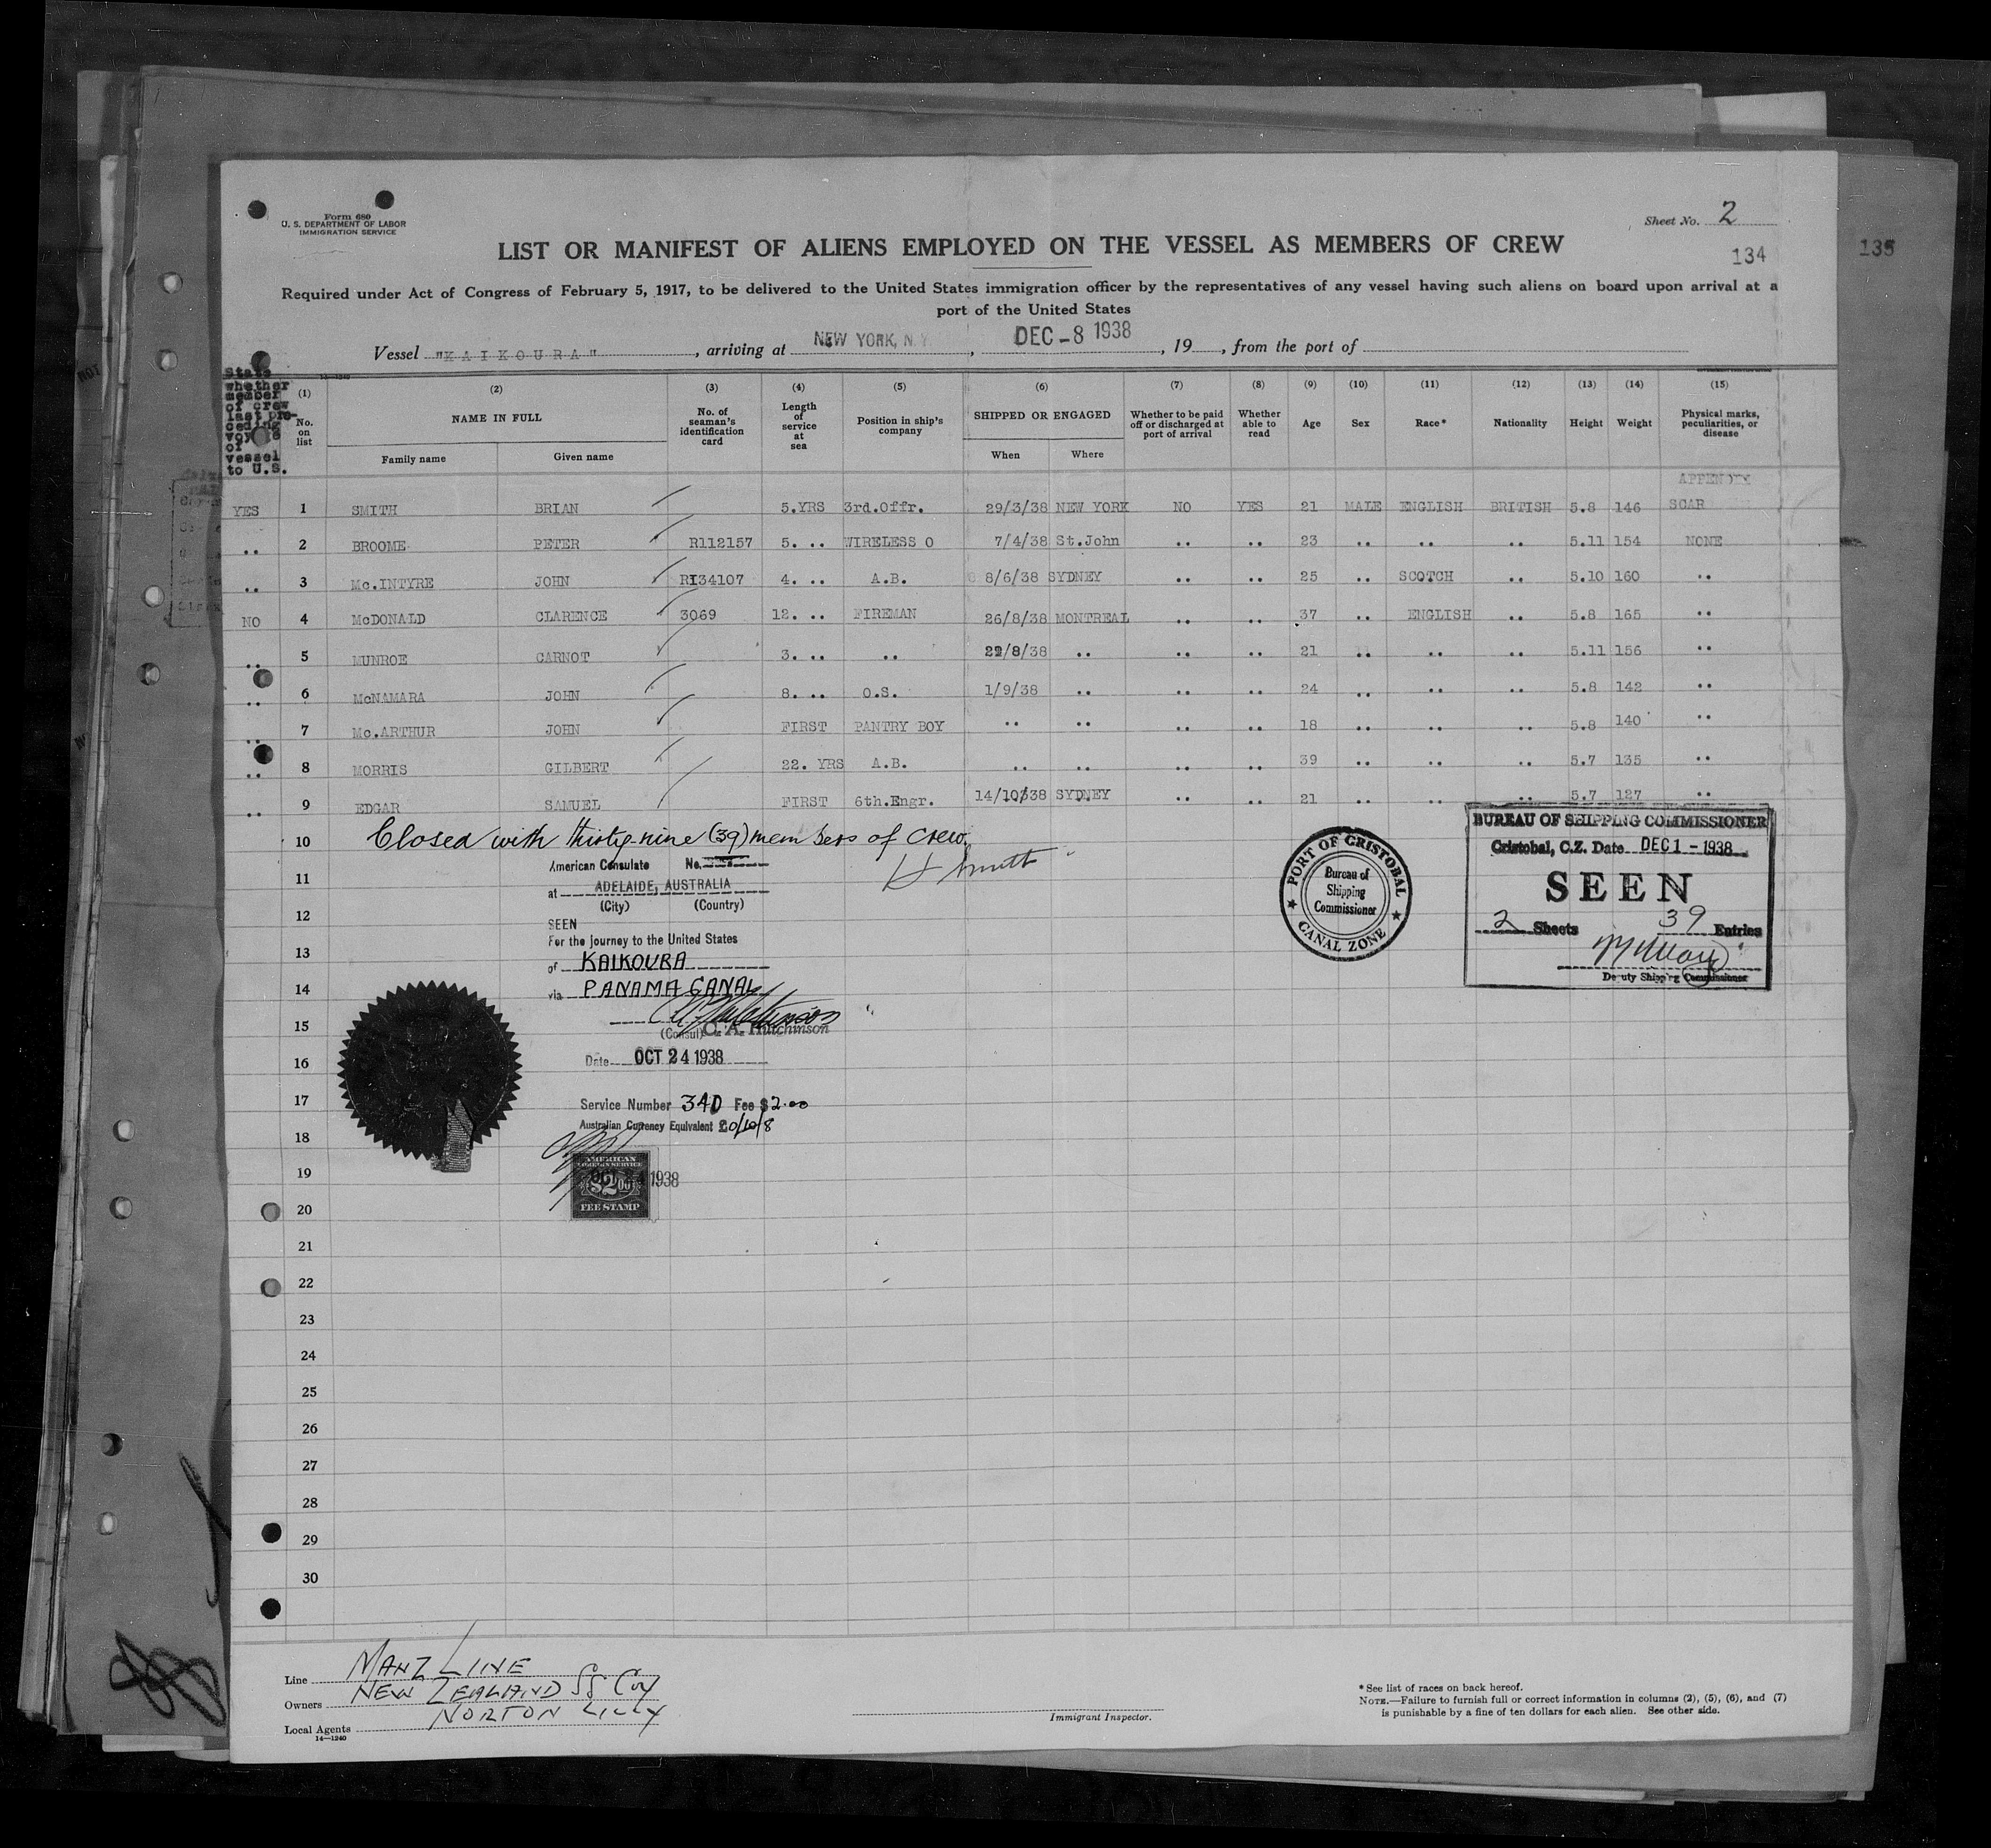 Form 680
U. S. DEPARTMENT OF LABOR
IMMIGRATION SERVICE
Sheet No. 2
LIST OR MANIFEST OF ALIENS EMPLOYED ON THE VESSEL AS MEMBERS OF CREW
134
135
Required under Act of Congress of February 5, 1917, to be delivered to the United States immigration officer by the representatives of any vessel having such aliens on board upon arrival at a
port of the United States
Vessel "KAIKOURA", arriving at NEW YORK, N.Y., DEC -8 1938, 19, from the port of
State whether member of crew last preceding voyage of vessel to U.S.
(1) No. on list
(2) NAME IN FULL Family name Given name
(3) No. of seaman's identification card
(4) Length of service at sea
(5) Position in ship's company
(6) SHIPPED OR ENGAGED When Where
(7) Whether to be paid off or discharged at port of arrival
(8) Whether able to read
(9) Age
(10) Sex
(11) Race*
(12) Nationality
(13) Height
(14) Weight
(15) Physical marks, peculiarities, or disease
YES 1 SMITH BRIAN 5.YRS 3rd.Offr. 29/3/38 NEW YORK NO YES 21 MALE ENGLISH BRITISH 5.8 146 APPENDIX SCAR
.. 2 BROOME PETER R112157 5. .. WIRELESS O 7/4/38 St.John .. .. 23 .. .. .. 5.11 154 NONE
.. 3 Mc.INTYRE JOHN RI34107 4. .. A.B. 8/6/38 SYDNEY .. .. 25 .. SCOTCH .. 5.10 160 ..
NO 4 McDONALD CLARENCE 3069 12. .. FIREMAN 26/8/38 MONTREAL .. .. 37 .. ENGLISH .. 5.8 165 ..
.. 5 MUNROE CARNOT 3. .. .. /8/38 .. .. .. 21 .. .. .. 5.11 156 ..
.. 6 McNAMARA JOHN 8. .. O.S. 1/9/38 .. .. .. 24 .. .. .. 5.8 142 ..
.. 7 Mc.ARTHUR JOHN FIRST PANTRY BOY .. .. .. .. 18 .. .. .. 5.8 140 ..
.. 8 MORRIS GILBERT 22. YRS A.B. .. .. .. .. 39 .. .. .. 5.7 135 ..
.. 9 EDGAR SAMUEL FIRST 6th.Engr. 14/10/38 SYDNEY .. .. 21 .. .. .. 5.7 127 ..
10 Closed with thirty-nine (39) members of crew.
H Smith
11
12
13
14
15
16
17
18
19
20
21
22
23
24
25
26
27
28
29
30
American Consulate No.
at ADELAIDE, AUSTRALIA
(City) (Country)
SEEN
For the journey to the United States
of KAIKOURA
via PANAMA CANAL
(Consul) C. A. Hutchinson
Date OCT 24 1938
Service Number 340 Fee $2.00
Australian Currency Equivalent £0/10/8
AMERICAN
FOREIGN SERVICE
$2.00
FEE STAMP
OCT 24 1938
PORT OF CRISTOBAL
Bureau of
Shipping
Commissioner
CANAL ZONE
BUREAU OF SHIPPING COMMISSIONER
Cristobal, C.Z. Date DEC 1 - 1938
SEEN
2 Sheets 39 Entries
Deputy Shipping Commissioner
Line MANZ LINE
Owners NEW ZEALAND SS Coy
Local Agents NORTON LILLY
14—1240
Immigrant Inspector.
* See list of races on back hereof.
NOTE.—Failure to furnish full or correct information in columns (2), (5), (6), and (7)
is punishable by a fine of ten dollars for each alien. See other side.